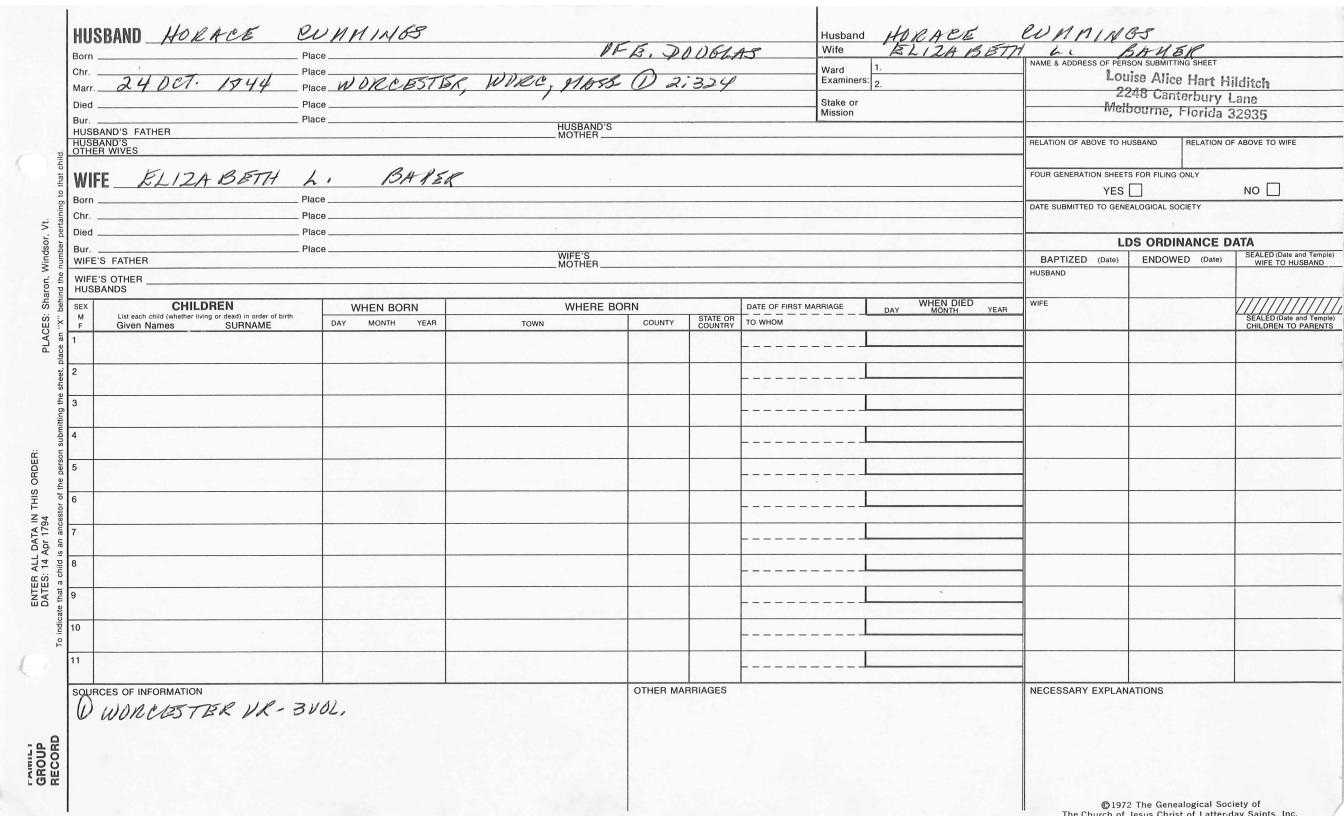 HUSBAND HORACE CUMMINGS
Born Place OF E. DOUGLAS
Chr. Place
Marr. 24 OCT. 1844 Place WORCESTER, WORC, MASS ① 2:324
Died Place
Bur. Place
HUSBAND'S FATHER HUSBAND'S MOTHER
HUSBAND'S OTHER WIVES
Husband HORACE CUMMINGS
Wife ELIZABETH L. BAKER
Ward Examiners: 1.
2.
Stake or Mission
NAME & ADDRESS OF PERSON SUBMITTING SHEET
Louise Alice Hart Hilditch
2248 Canterbury Lane
Melbourne, Florida 32935
RELATION OF ABOVE TO HUSBAND RELATION OF ABOVE TO WIFE
FOUR GENERATION SHEETS FOR FILING ONLY
YES NO
DATE SUBMITTED TO GENEALOGICAL SOCIETY
WIFE ELIZABETH L. BAKER
Born Place
Chr. Place
Died Place
Bur. Place
WIFE'S FATHER WIFE'S MOTHER
WIFE'S OTHER HUSBANDS
LDS ORDINANCE DATA
BAPTIZED (Date) ENDOWED (Date) SEALED (Date and Temple) WIFE TO HUSBAND
HUSBAND
WIFE
SEALED (Date and Temple) CHILDREN TO PARENTS
SEX M F
CHILDREN
List each child (whether living or dead) in order of birth
Given Names SURNAME
WHEN BORN
DAY MONTH YEAR
WHERE BORN
TOWN COUNTY STATE OR COUNTRY
DATE OF FIRST MARRIAGE
TO WHOM
WHEN DIED
DAY MONTH YEAR
1
2
3
4
5
6
7
8
9
10
11
SOURCES OF INFORMATION
① WORCESTER VR - 3 VOL.
OTHER MARRIAGES
NECESSARY EXPLANATIONS
©1972 The Genealogical Society of
The Church of Jesus Christ of Latter-day Saints, Inc.
ENTER ALL DATA IN THIS ORDER:
DATES: 14 Apr 1794 PLACES: Sharon, Windsor, Vt.
To indicate that a child is an ancestor of the person submitting the sheet, place an "X" behind the number pertaining to that child.
FAMILY GROUP RECORD